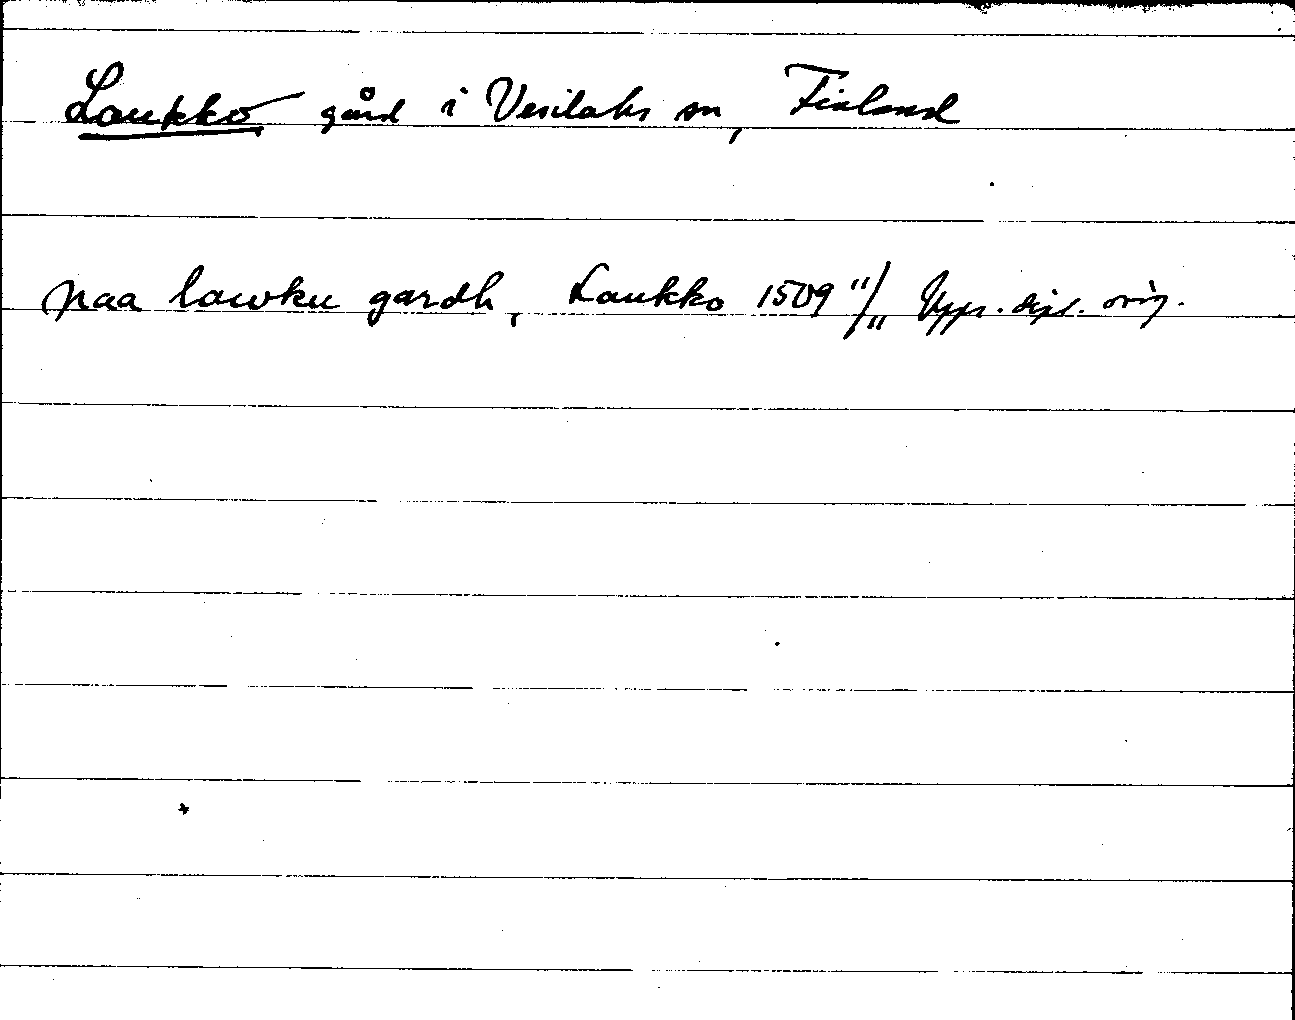 Laukko gård i Vesilaks sn, Finland
paa lawku gardh, Laukko 1509 11/11 Upps. dipl. orig.